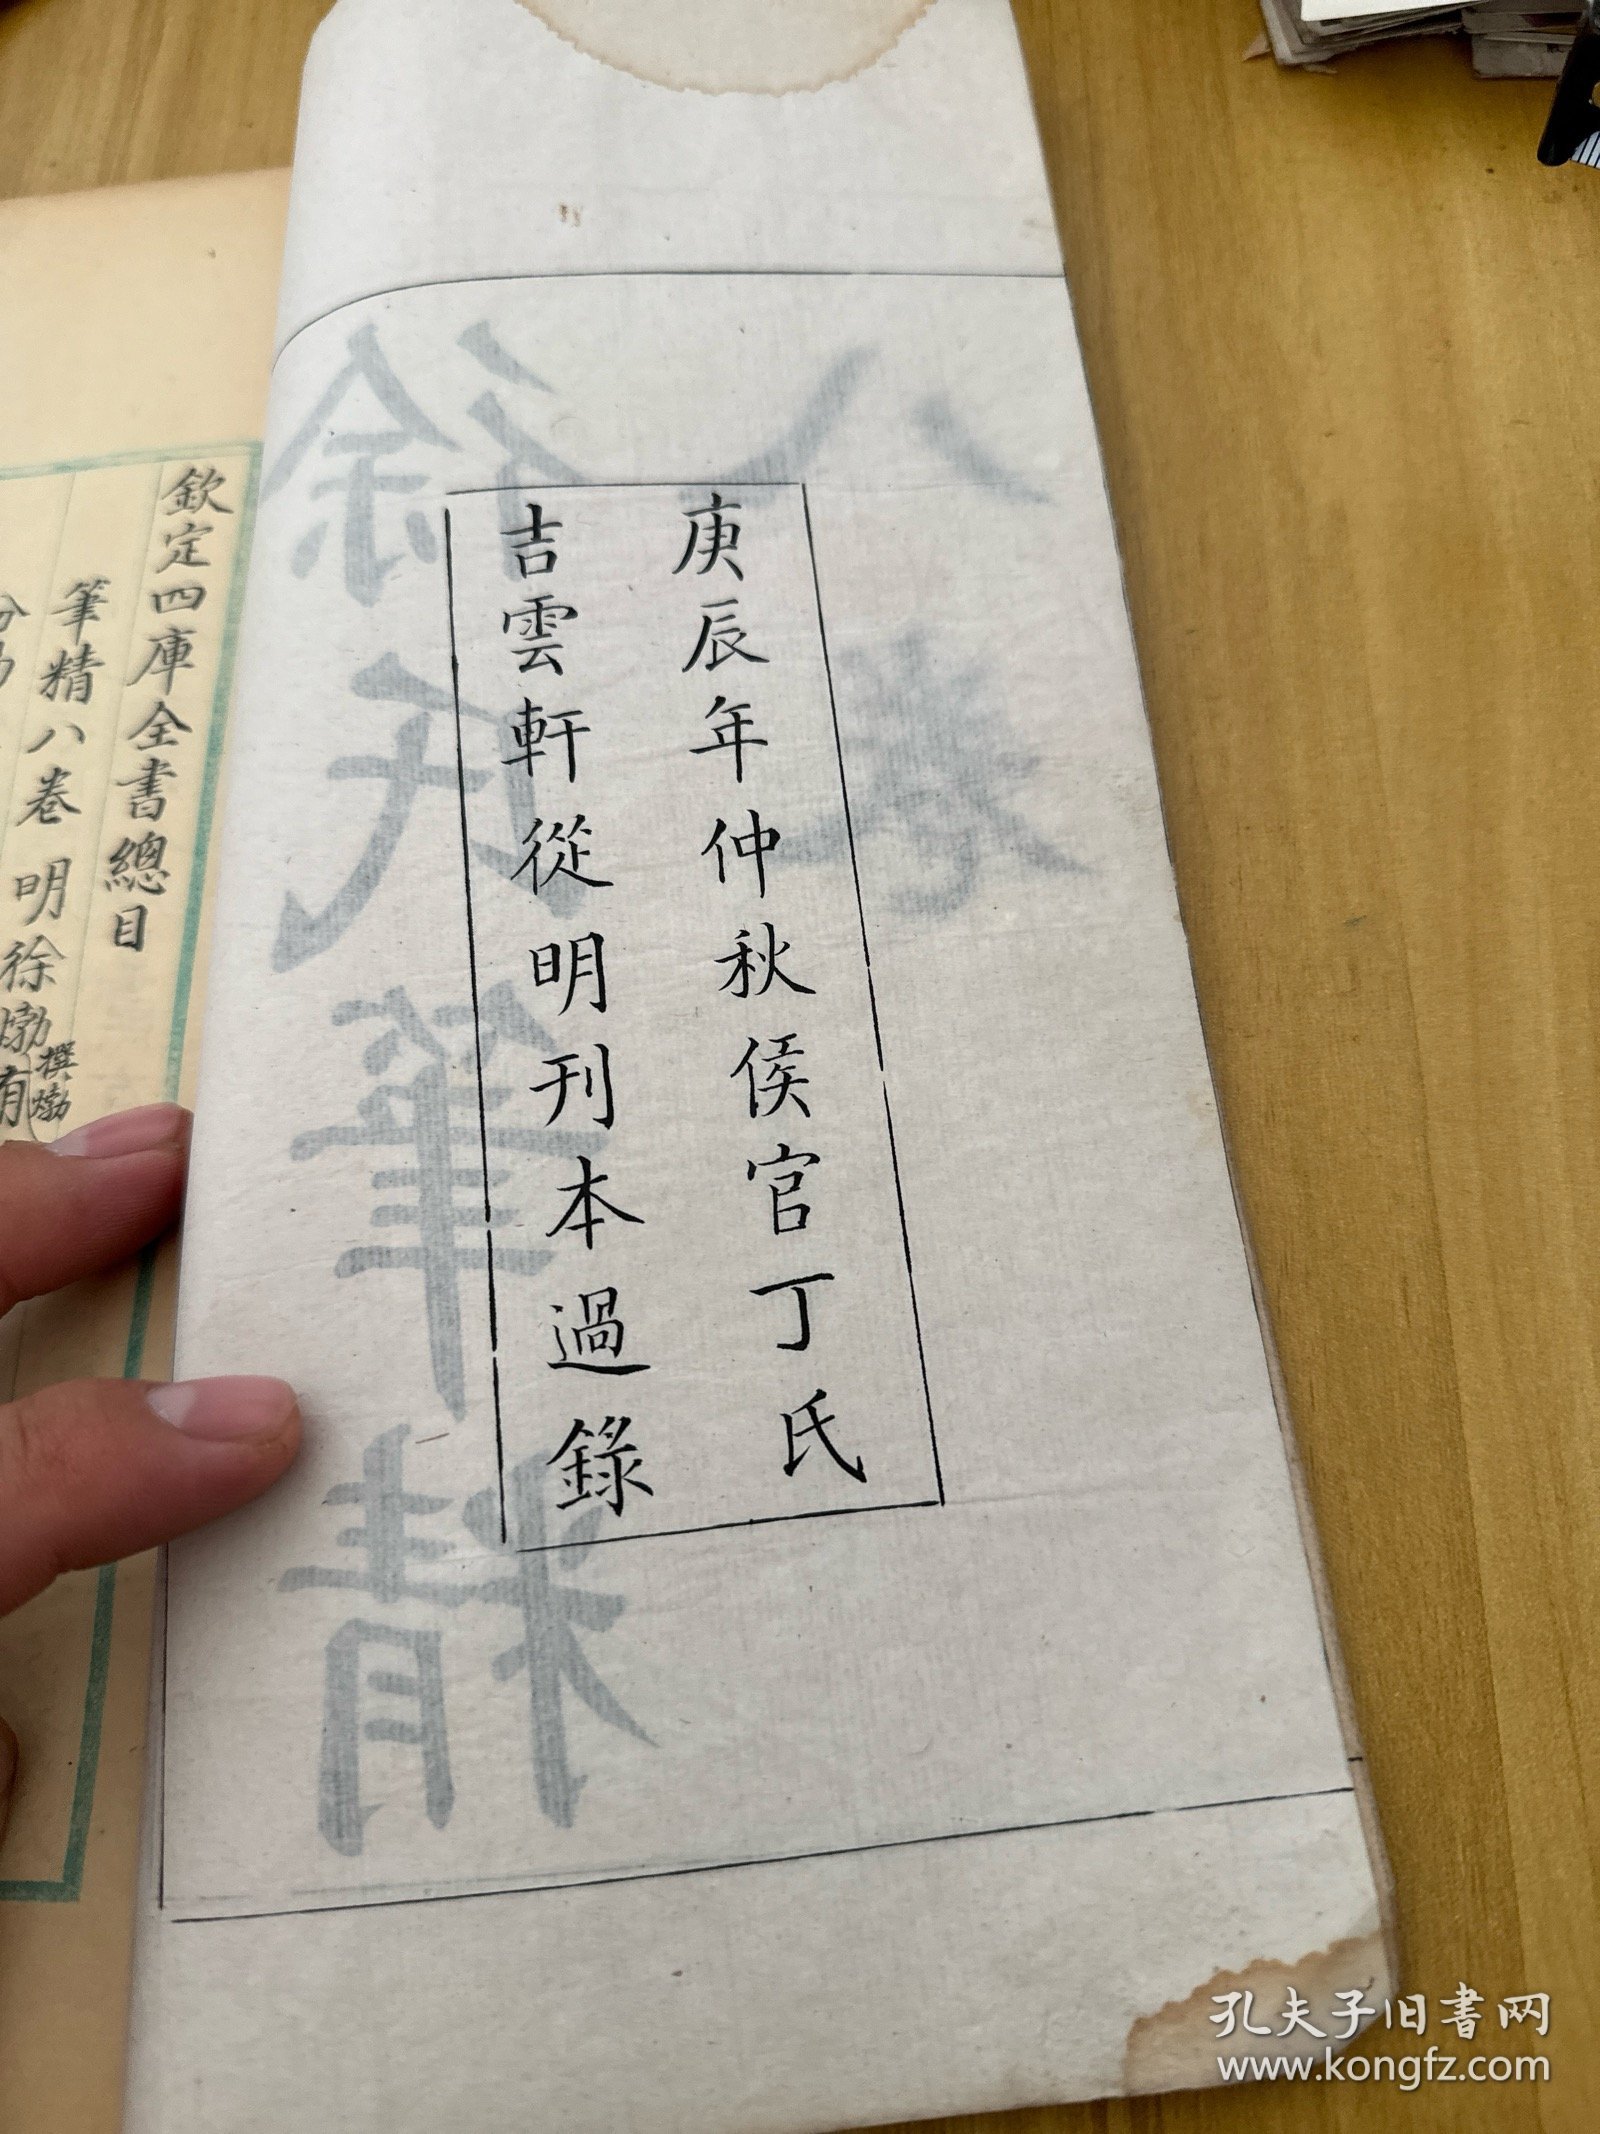 庚辰年仲秋侯官丁氏
吉雲軒從明刊本過錄
八卷
徐氏筆精
欽定四庫全書總目
筆精八卷 明徐𤊹撰𤊹
有
孔夫子旧书网
www.kongfz.com